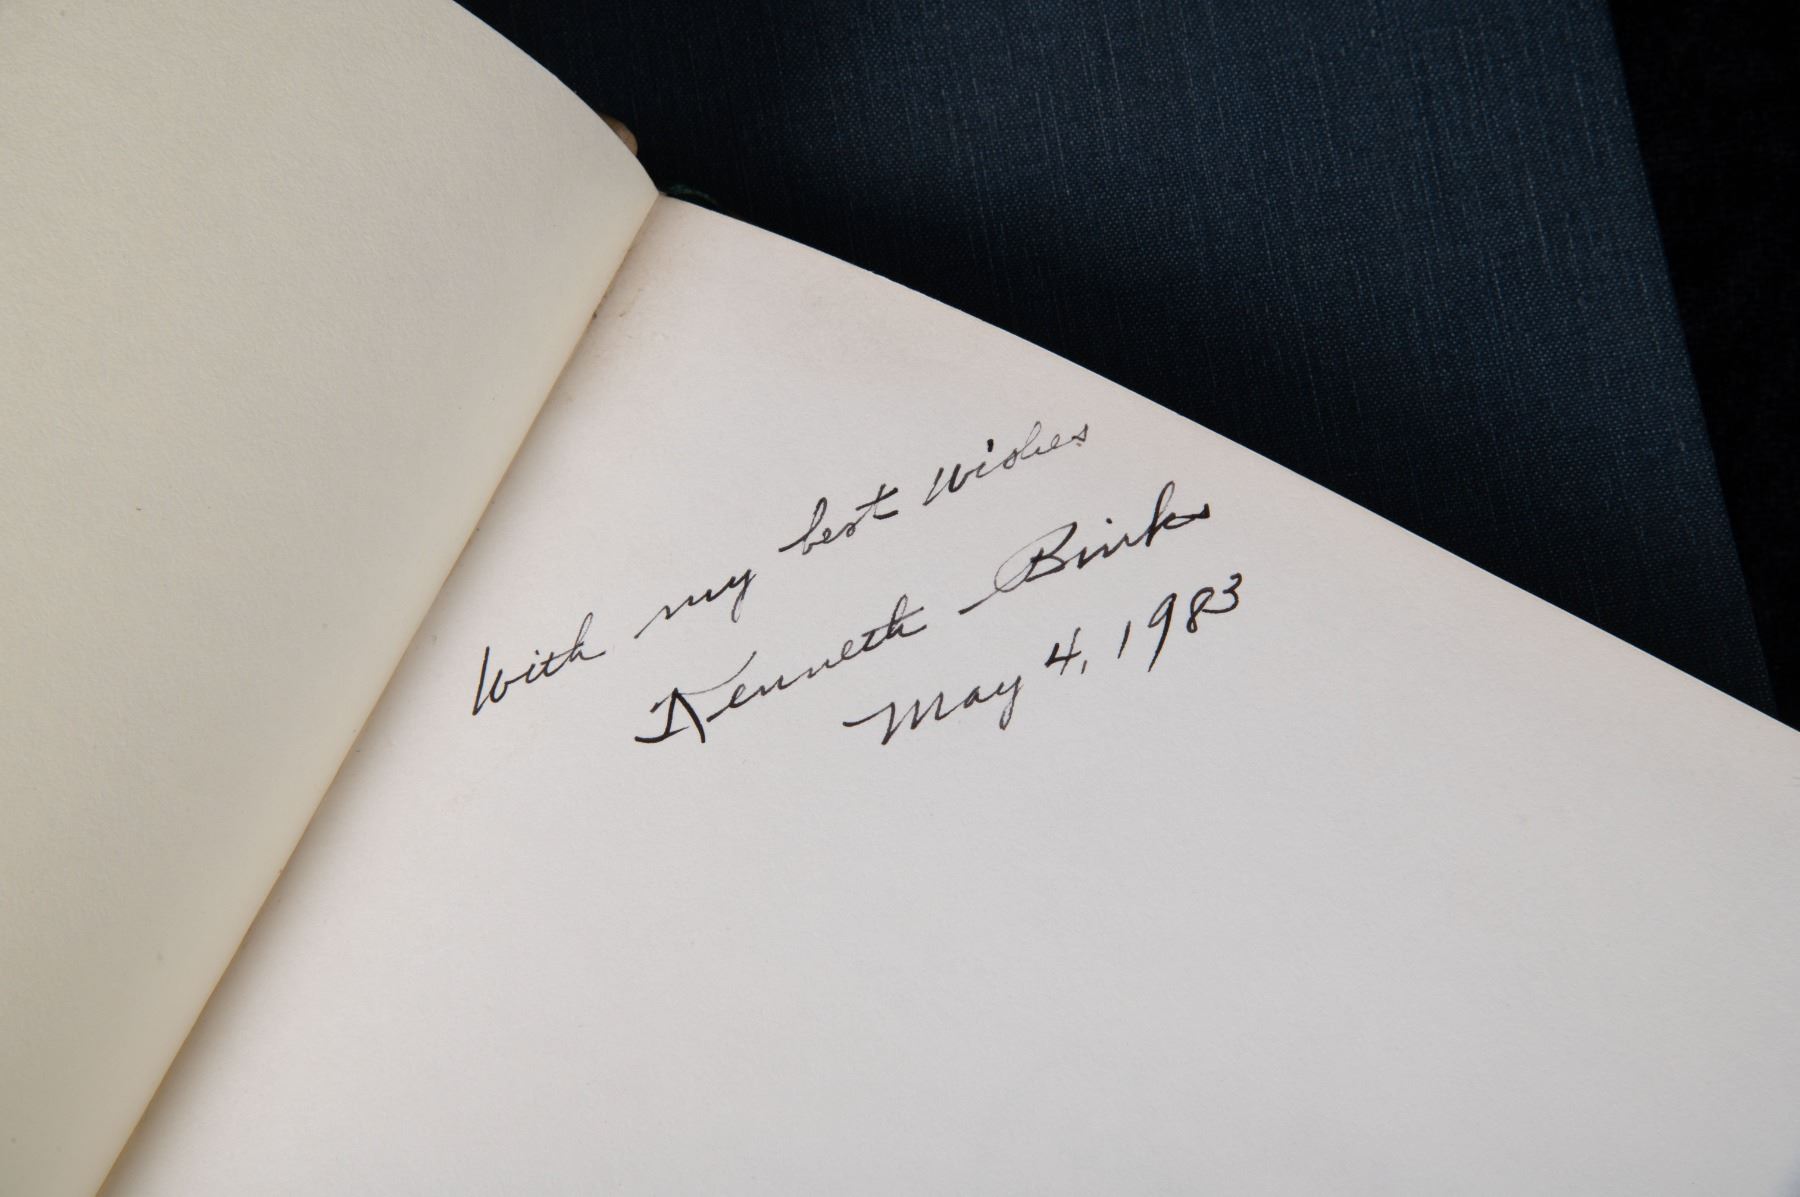 With my best wishes
Kenneth Binks
May 4, 1983